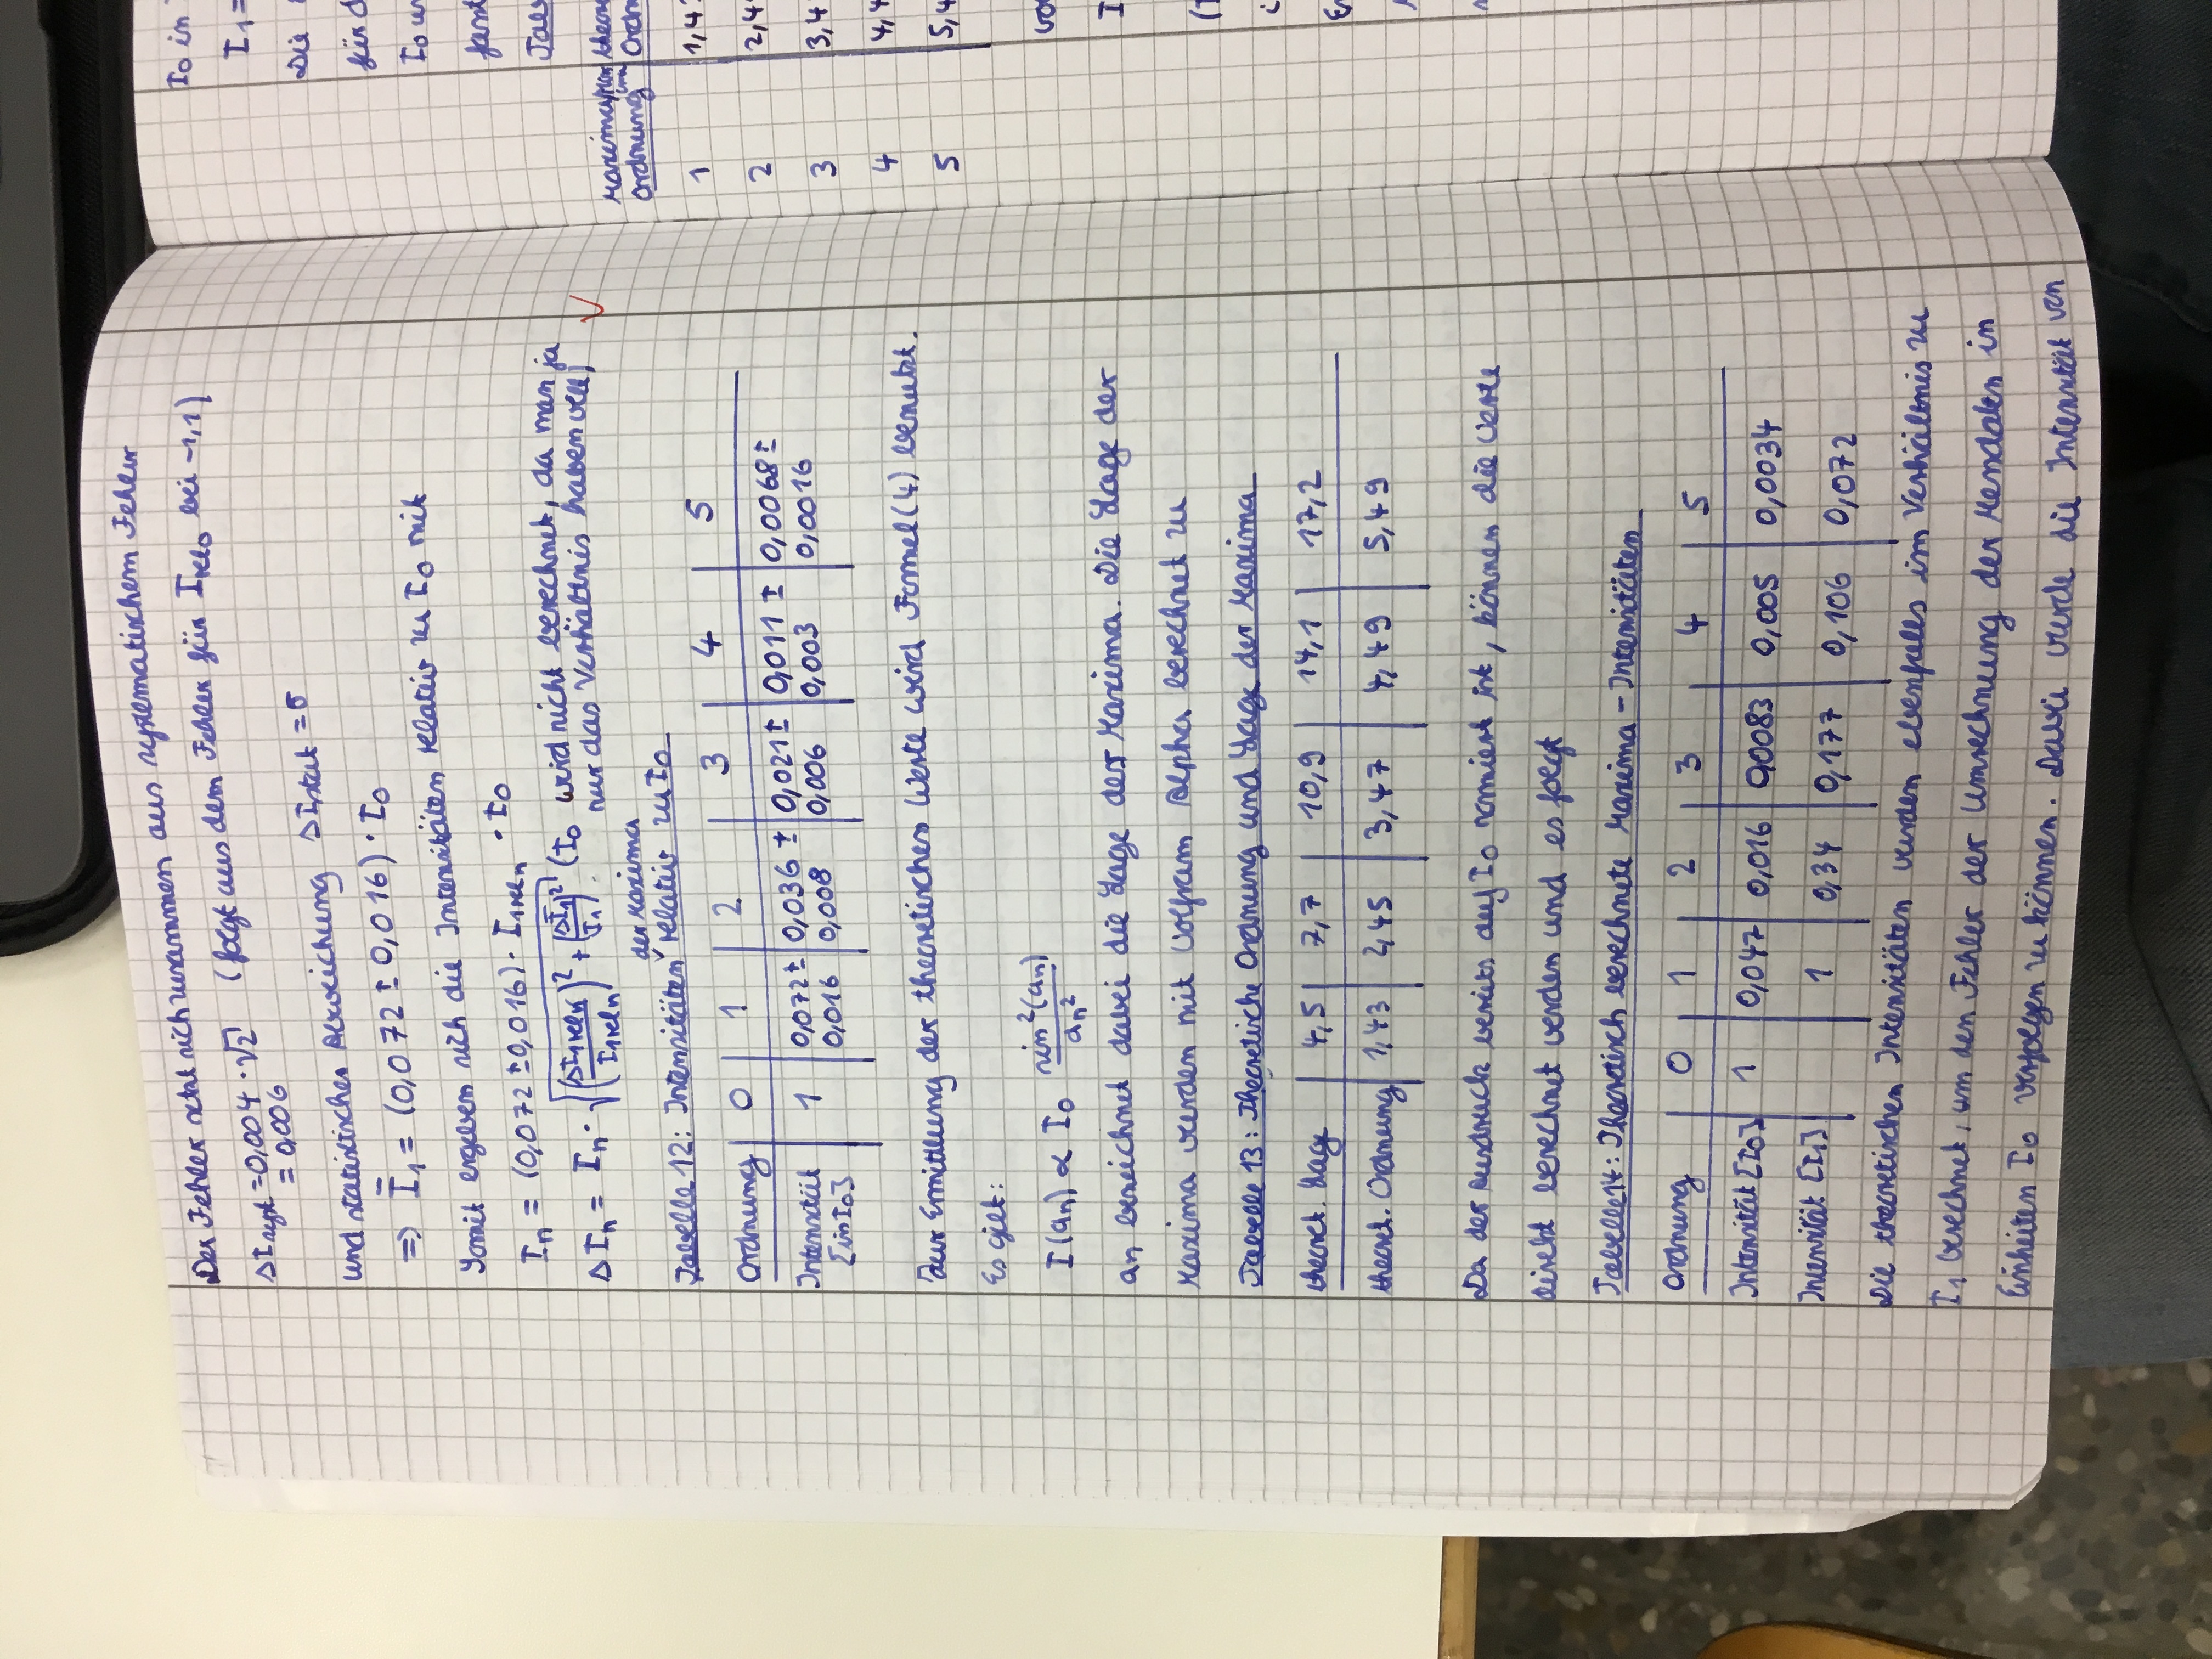 Der Fehler setzt sich zusammen aus systematischem Fehler
ΔI_syst. = 0,004 · √2 (folgt aus dem Fehler für I_rel0 bei -1,1)
= 0,006
und statistischer Abweichung ΔI_stat = σ
⇒ Ī₁ = (0,072 ± 0,016) · I₀
Somit ergeben sich die Intensitäten relativ zu I₀ mit
I_n = (0,072 ± 0,016) · I_1rel_n · I₀
ΔI_n = I_n · √((ΔI_1rel_n / I_1rel_n)² + (ΔĪ₁ / Ī₁)²) (I₀ wird nicht berechnet, da man ja
nur das Verhältnis haben will)
Tabelle 12: Intensitäten der Maxima relativ zu I₀
Ordnung | 0 | 1 | 2 | 3 | 4 | 5
Intensität [in I₀] | 1 | 0,072 ± 0,016 | 0,036 ± 0,008 | 0,021 ± 0,006 | 0,011 ± 0,003 | 0,0068 ± 0,0016
Zur Ermittlung der theoretischen Werte wird Formel (4) benutzt.
Es gilt:
I(a_n) ∝ I₀ sin²(a_n) / a_n²
an bezeichnet dabei die Lage der Maxima. Die Lage der
Maxima wurden mit Wolfram Alpha berechnet zu
Tabelle 13: Theoretische Ordnung und Lage der Maxima
theoret. Lage | 4,5 | 7,7 | 10,9 | 14,1 | 17,2
theoret. Ordnung | 1,43 | 2,45 | 3,47 | 4,49 | 5,49
Da der Ausdruck bereits auf I₀ normiert ist, können die Werte
direkt berechnet werden und es folgt
Tabelle 14: Theoretisch berechnete Maxima - Intensitäten
Ordnung | 0 | 1 | 2 | 3 | 4 | 5
Intensität [I₀] | 1 | 0,047 | 0,016 | 0,0083 | 0,005 | 0,0034
Intensität [I₁] | | 1 | 0,34 | 0,177 | 0,106 | 0,072
Die theoretischen Intensitäten wurden ebenfalls im Verhältnis zu
I₁ berechnet, um den Fehler der Umrechnung der Messdaten in
Einheiten I₀ verfolgen zu können. Dabei wurde die Intensität von
I₀ in
I₁ =
Die
für d
I₀
Maxima
Ordnung
1 | 1,4
2 | 2,4
3 | 3,4
4 | 4,4
5 | 5,4